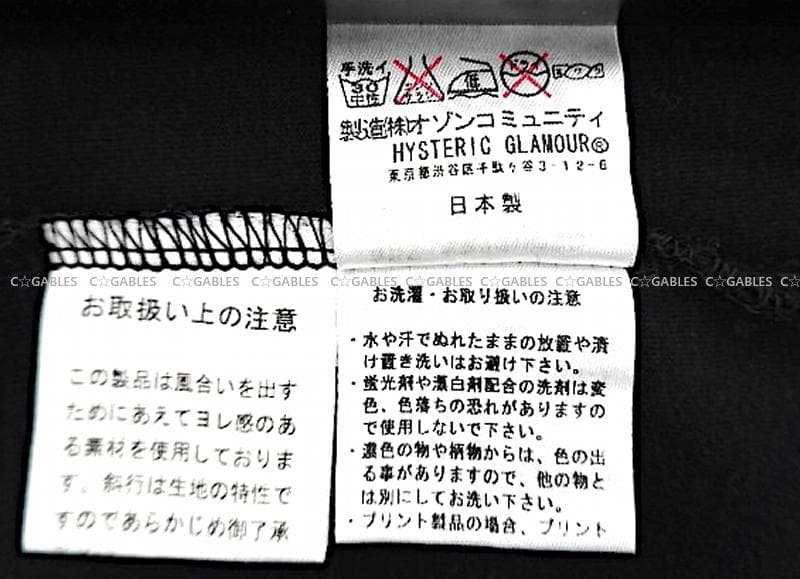 手洗イ
30
中性
低
ドライ
製造㈱オゾンコミュニティ
HYSTERIC GLAMOUR®
東京都渋谷区千駄ヶ谷3-12-6
日本製
C☆GABLES C☆GABLES C☆GABLES C☆GABLES C☆GABLES C☆GABLES C☆GABLES C☆GABLES C☆GABLES C☆GABLES
お取扱い上の注意
この製品は風合いを出す
ためにあえてヨレ感のあ
る素材を使用しておりま
す。斜行は生地の特性で
すのであらかじめ御了承
お洗濯・お取り扱いの注意
・水や汗でぬれたままの放置や漬
け置き洗いはお避け下さい。
・蛍光剤や漂白剤配合の洗剤は変
色、色落ちの恐れがありますの
で使用しないで下さい。
・濃色の物や柄物からは、色の出
る事がありますので、他の物と
は別にしてお洗い下さい。
・プリント製品の場合、プリント